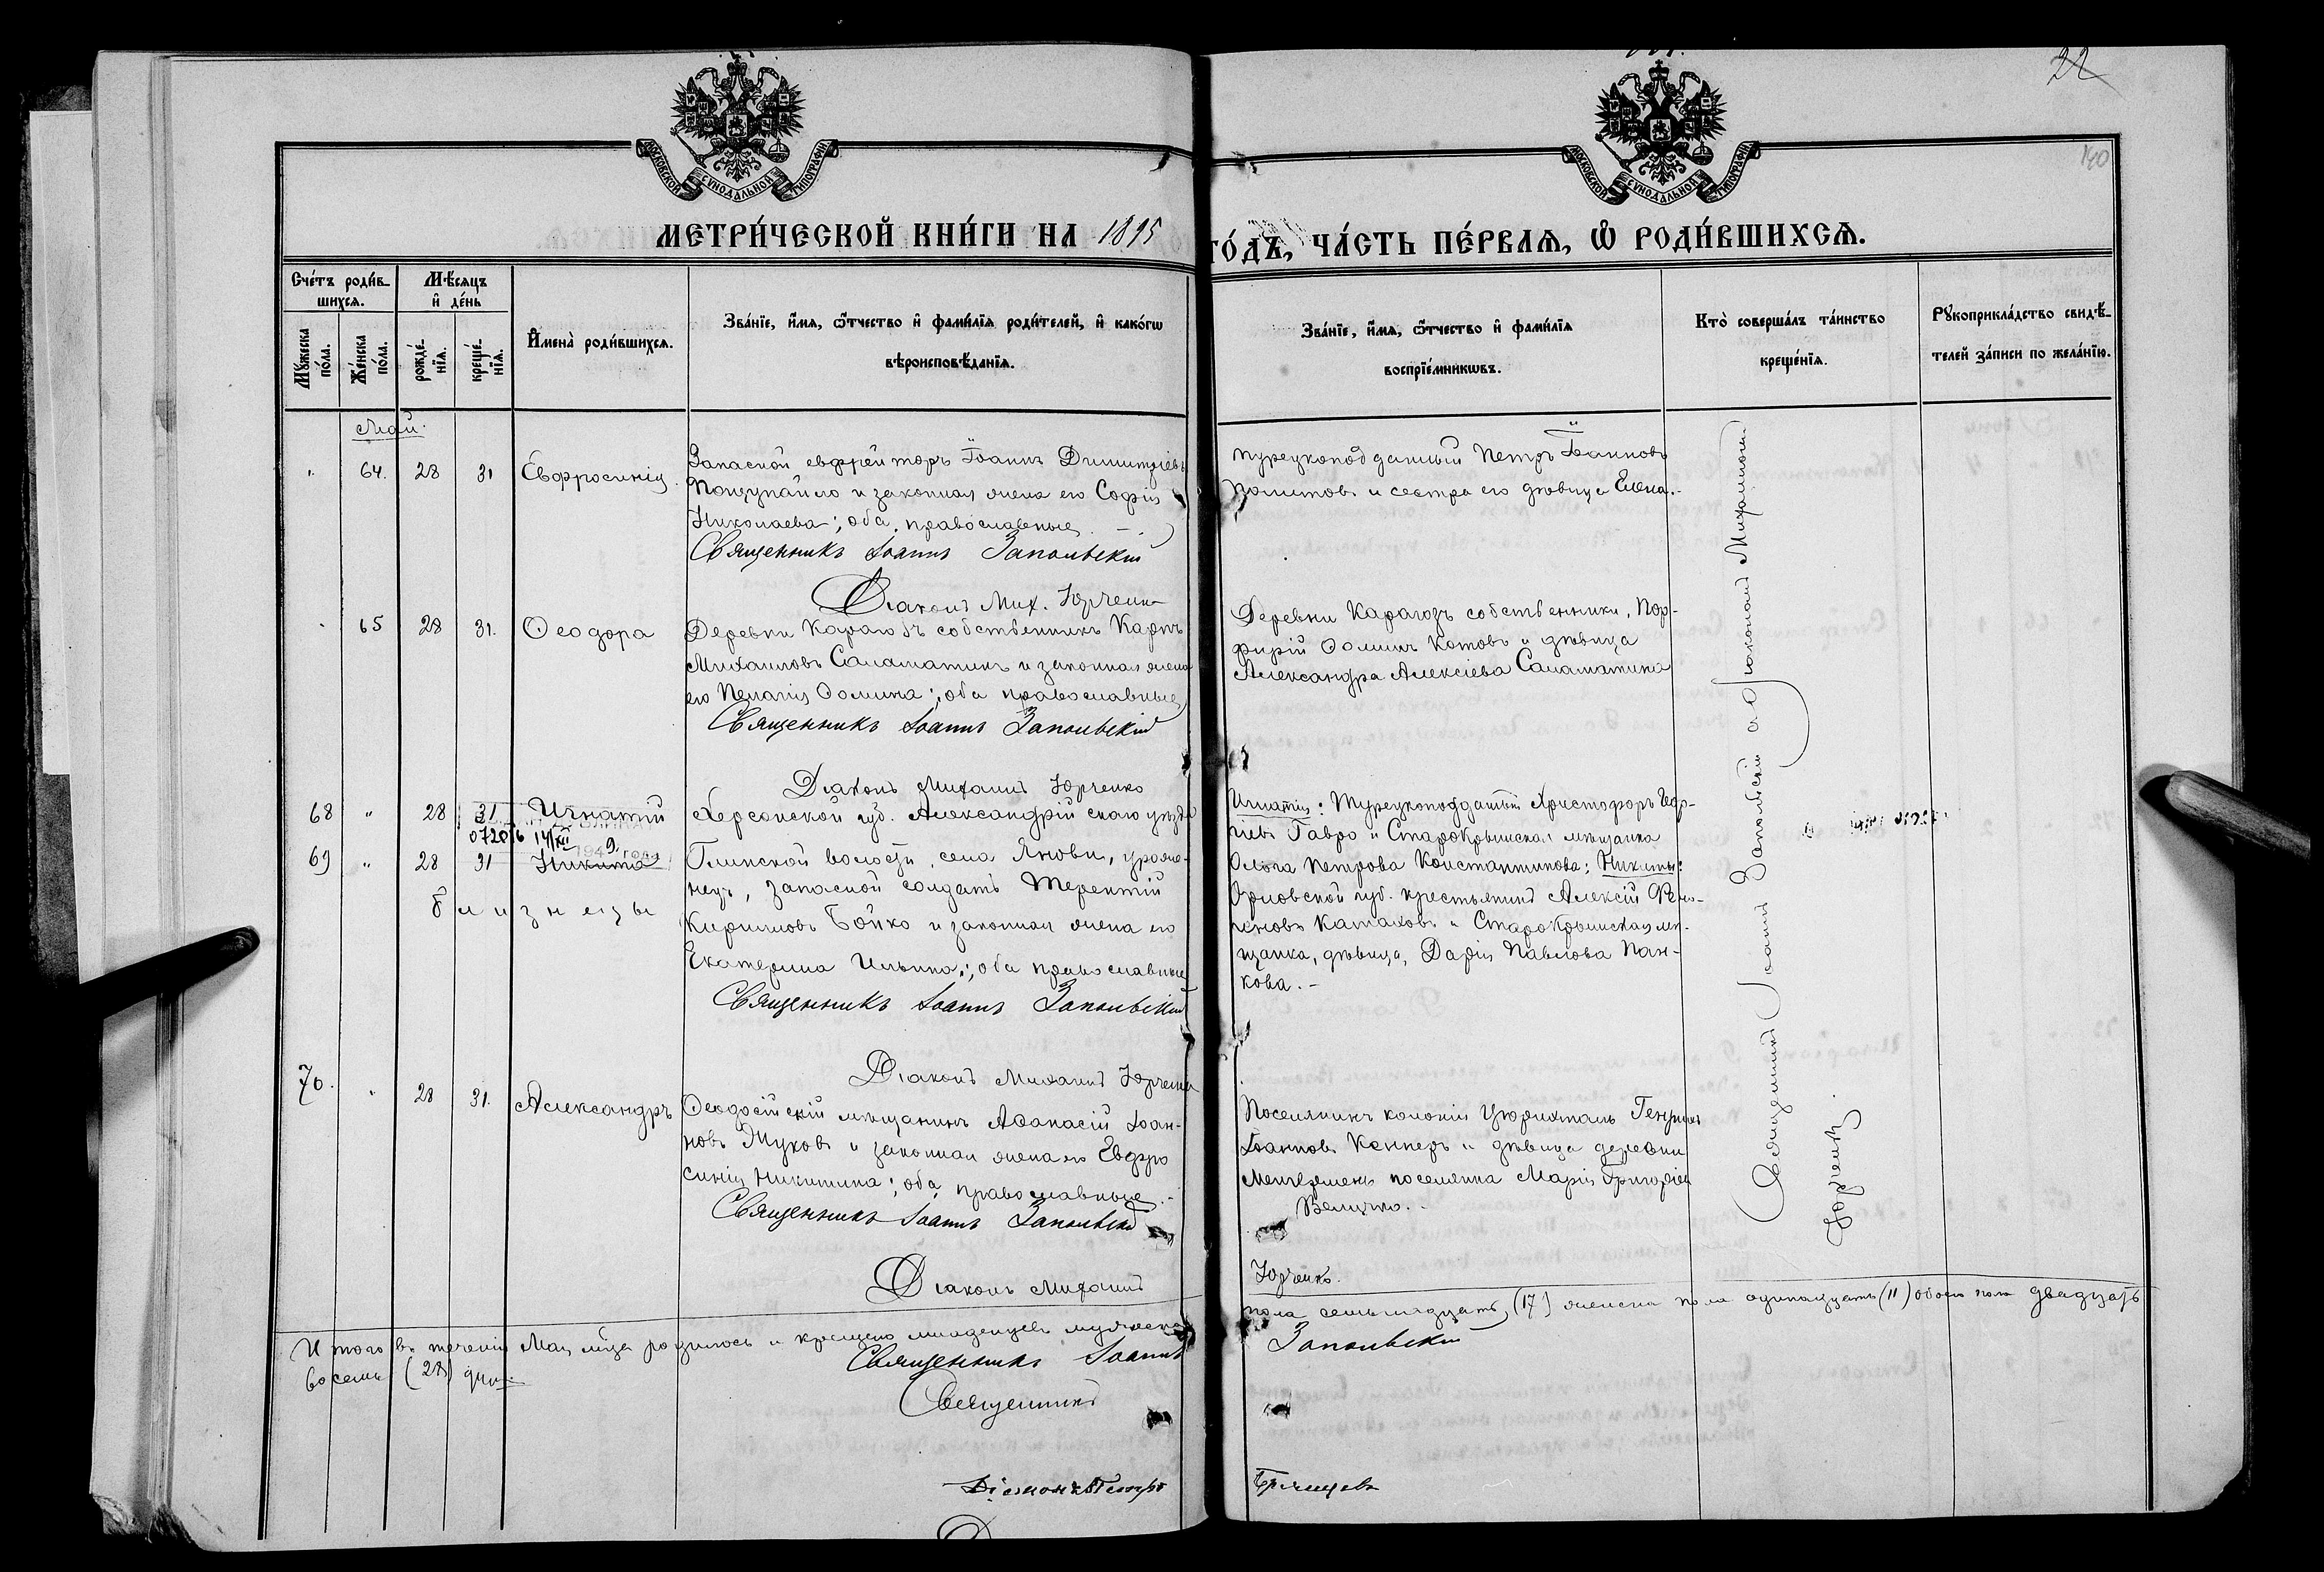 22
140
МОСКОВСКОЙ СѴНОДАЛЬНОЙ ТИПОГРАФІИ
МОСКОВСКОЙ СѴНОДАЛЬНОЙ ТИПОГРАФІИ
МЕТРИ́ЧЕСКОЙ КНИ́ГИ НА 1895
ГО́ДЪ, ЧА́СТЬ ПЕ́РВАЯ, Ѡ РОДИ́ВШИХСЯ.
Сче́тъ роди́в-
шихся.
Мѣ́сяцъ
и де́нь
Мꙋ́жеска
по́ла.
Же́нска
по́ла.
рожде́-
нїя.
креще́-
нїя.
Имена̀ роди́вшихся.
Зва́нїе, и́мя, ѻ́тчество и фами́лїя роди́телей, и како́гѡ
вѣроисповѣ́данїя.
Зва́нїе, и́мя, ѻ́тчество и фами́лїя
воспрїе́мникѡвъ.
Кто̀ соверша́лъ та́инство
креще́нїя.
Рꙋкоприкла́дство свидѣ́-
телей за́писи по жела́нїю.
Май.
" 64. 28 31 Евфросинія.
Запасной ефрейторъ Іоаннъ Димитріевъ
и законная жена его Софія
Николаева; оба православные.
Священникъ Іоаннъ Запольскій
Діаконъ Мих. Юрченко
турецкоподданный Петръ Іоанновъ
и сестра его дѣвица Елена.
65 28 31. Ѳеодора
Деревни Карагозъ собственникъ Карпъ
Михаиловъ Саламатинъ и законная жена
его Пелагія Ѳомина; оба православные
Священникъ Іоаннъ Запольскій
Діаконъ Михаилъ Юрченко
Деревни Карагозъ собственники, Пор-
фирій Ѳоминъ Котовъ и дѣвица
Александра Алексіева Саламатина
68 " 28 31 Игнатій
07286 14/XII
1949. года
69 " 28 31 Никита
близнецы
Херсонской губ. Александрійскаго уѣзда
Глинской волости, села Яновки, уроже-
нецъ, запасной солдатъ Терентій
Кирилловъ Бойко и законная жена его
Екатерина Ильина; оба православные
Священникъ Іоаннъ Запольскій
Діаконъ Михаилъ Юрченко
Игнатія: Турецкоподданный Христофоръ Геор-
гіевъ Гавро и Старокрымская мѣщанка
Ольга Петрова Константинова; Никиты:
Орловской губ. крестьянинъ Алексій
Катаховъ и Старокрымская мѣ-
щанка, дѣвица, Дарія Павлова Пан-
кова.
70. " 28 31. Александръ
Ѳеодосійскій мѣщанинъ Аѳанасій Іоан-
новъ Жуковъ и законная жена его Евфро
синія Никитина; оба православные.
Священникъ Іоаннъ Запольскій
Діаконъ Михаилъ
Юрченко.
Поселянинъ колоніи Цюрихталь Генрихъ
Іоанновъ Келлеръ и дѣвица деревни
поселянка Марія Григоріева
Величко.
Священникъ Іоаннъ Запольскій и Діаконъ Михаилъ
Юрченко.
Итого въ теченіи Мая м-ца родилось и крещено младенцевъ мужеска
пола семьнадцать (17) женска пола одинадцать (11) обоего пола двадцать
восемь (28) душъ.
Священникъ Іоаннъ
Запольскій
Священникъ
Діаконъ Петръ